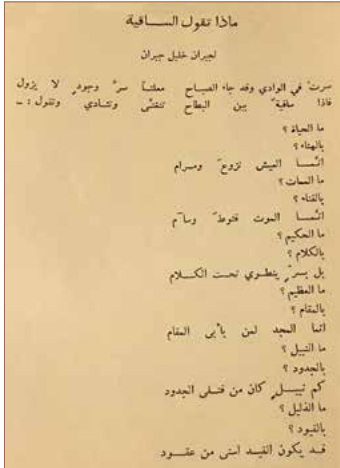 ماذا تقول الساقية
لجبران خليل جبران
سرتُ في الوادي وقد جاء الصباح معلناً سرَّ وجودٍ لا يزول
فاذا ساقيةٌ بين البطاح تتغنّى وتنادي وتقول : ــ
ما الحياة ؟
بالهناء ؟
انّما العيش نزوعٌ ومرام
ما الممات ؟
بالفناء ؟
انّما الموت قنوطٌ وسآم
ما الحكيم ؟
بالكلام ؟
بل بسرٍّ ينطوي تحت الكلام
ما العظيم ؟
بالمقام ؟
انما المجد لمن يأبى المقام
ما النبيل ؟
بالجدود ؟
كم نبيلٍ كان من قتلى الجدود
ما الذليل ؟
بالقيود ؟
قد يكون القيد اسنى من عقود